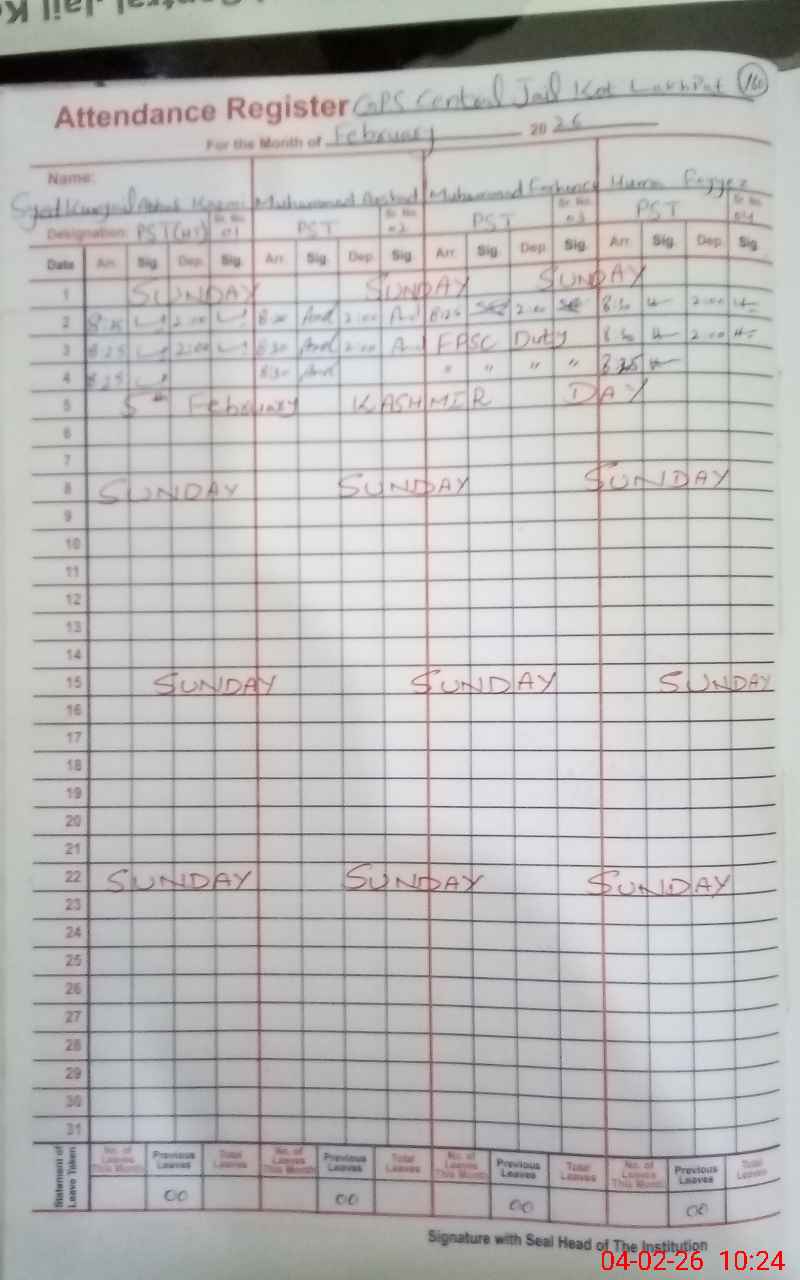 Central Jail K
Attendance Register GPS Central Jail Kot Lakhpat 160
For the Month of February 20 26
Name:
Muhammad Arshad Muhammad Huma Fayyaz
Designation: PST(HT) Sr. No. 01 PST Sr. No. 02 PST Sr. No. 03 PST Sr. No. 04
Date Arr. Sig. Dep. Sig. Arr. Sig. Dep. Sig. Arr. Sig. Dep. Sig. Arr. Sig. Dep. Sig.
1 SUNDAY SUNDAY SUNDAY
2 8:25 2:00 8:30 2:00 8:25 2:00 8:30 2:00
3 8:25 2:00 8:30 2:00 FPSC Duty 8:30 2:00
4 8:25 8:30 " " " " 8:25
5 5th February KASHMIR DAY
6
7
8 SUNDAY SUNDAY SUNDAY
9
10
11
12
13
14
15 SUNDAY SUNDAY SUNDAY
16
17
18
19
20
21
22 SUNDAY SUNDAY SUNDAY
23
24
25
26
27
28
29
30
31
Statement of Leave Taken
No. of Leaves This Month Previous Leaves Total Leaves No. of Leaves This Month Previous Leaves Total Leaves No. of Leaves This Month Previous Leaves Total Leaves No. of Leaves This Month Previous Leaves Total Leaves
00 00 00 00
Signature with Seal Head of The Institution
04-02-26 10:24